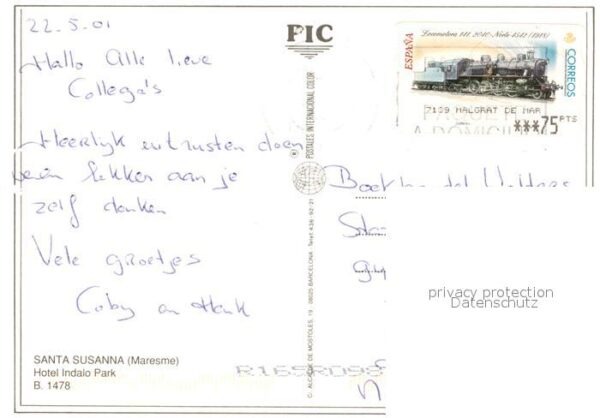 22-5-01
Hallo Alle lieve
Collega's
Heerlijk uitrusten doen
even lekker aan je
zelf denken
Vele groetjes
Coby en Henk
SANTA SUSANNA (Maresme)
Hotel Indalo Park
B. 1478
PIC
POSTALES INTERNACIONAL COLOR
C/. ALCALDE DE MOSTOLES, 19 - 08025 BARCELONA - Telef. 436-92-21
Locomotora 141 2040-Norte 4541 (1918)
ESPAÑA
CORREOS
7109 MALGRAT DE MAR
***75 PTS
A DOMICIL
privacy protection
Datenschutz